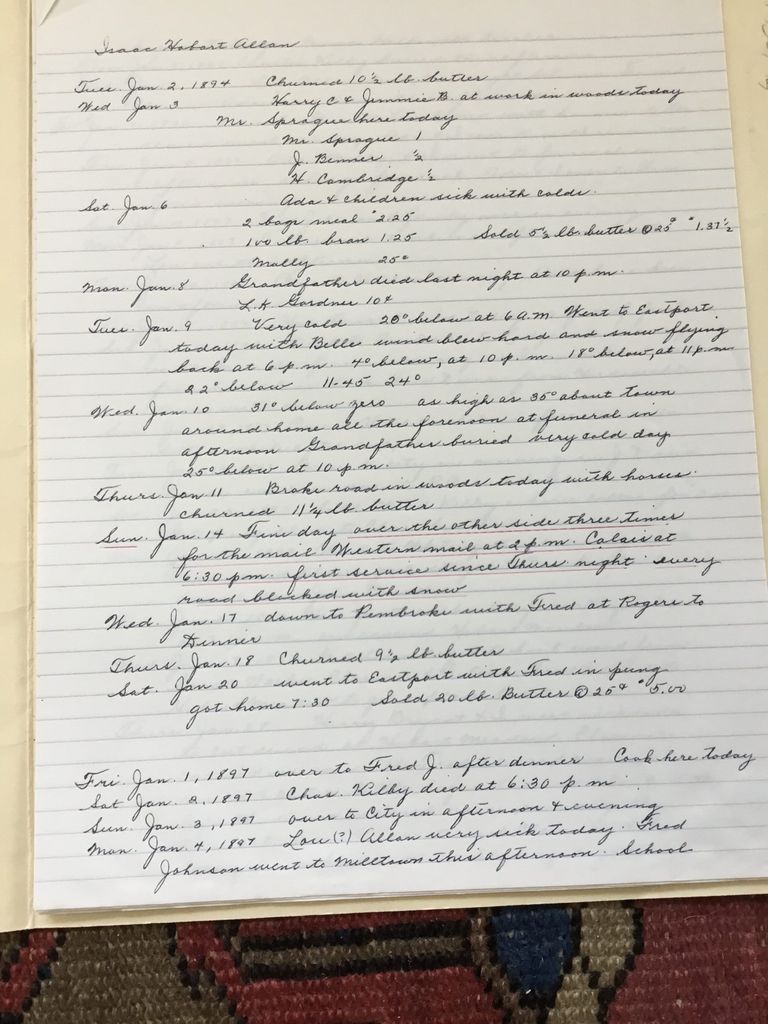 Isaac Hobart Allan
Tues. Jan. 2, 1894 Churned 10 1/2 lb. butter
Wed Jan 3 Harry C & Jimmie B. at work in woods today
Mr. Sprague here today
Mr. Sprague 1
J. Benner 1/2
H. Cambridge 1/2
Sat. Jan. 6 Ada & children sick with colds.
2 bags meal $2.25
100 lb. bran 1.25 Sold 5 1/2 lb. butter @ 25¢ $1.37 1/2
Molly 25¢
Mon. Jan. 8 Grandfather died last night at 10 p.m.
L.H. Gardner 10¢
Tues. Jan. 9 Very cold 20° below at 6 A.M. Went to Eastport
today with Belle wind blew hard and snow flying
back at 6 p.m. 4° below, at 10 p.m. 18° below, at 11 p.m
22° below 11-45 24°
Wed. Jan. 10 31° below zero as high as 35° about town
around home all the forenoon at funeral in
afternoon Grandfather buried very cold day
25° below at 10 p.m.
Thurs. Jan. 11 Broke road in woods today with horses.
churned 11 1/4 lb butter
Sun. Jan. 14 Fine day over the other side three times
for the mail Western mail at 2 p.m. Calais at
6:30 p.m. first service since Thurs. night every
road blocked with snow
Wed. Jan. 17 down to Pembroke with Fred at Rogers to
Dinner
Thurs. Jan. 18 Churned 9 1/2 lb butter
Sat. Jan 20 went to Eastport with Fred in pung
got home 7:30 Sold 20 lb. Butter @ 25¢ $5.00
Fri. Jan. 1, 1897 over to Fred J. after dinner Cook here today
Sat Jan. 2, 1897 Chas. Kilby died at 6:30 p.m
Sun. Jan. 3, 1897 over to City in afternoon & evening
Mon. Jan. 4, 1897 Lou (?) Allan very sick today. Fred
Johnson went to Milltown this afternoon. School